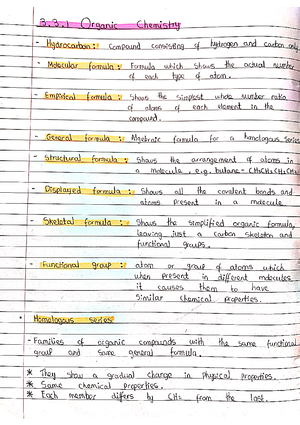 3.3.1 Organic Chemistry
- Hydrocarbon: compound consisting of hydrogen and carbon only
- Molecular formula: Formula which shows the actual number
of each type of atom.
- Empirical formula: Shows the simplest whole number ratio
of atoms of each element in the
compound.
- General formula: Algebraic formula for a homologous series
- Structural formula: Shows the arrangement of atoms in
a molecule, e.g. butane = CH3CH2CH2CH3
- Displayed formula: Shows all the covalent bonds and
atoms present in a molecule
- Skeletal formula: Shows the simplified organic formula,
leaving just a carbon skeleton and
functional groups.
- Functional group: atom or group of atoms which
when present in different molecules
it causes them to have
similar chemical properties.
• Homologous series
- Families of organic compounds with the same functional
group and same general formula.
* They show a gradual change in physical properties.
* Same chemical properties.
* Each member differs by CH2 from the last.